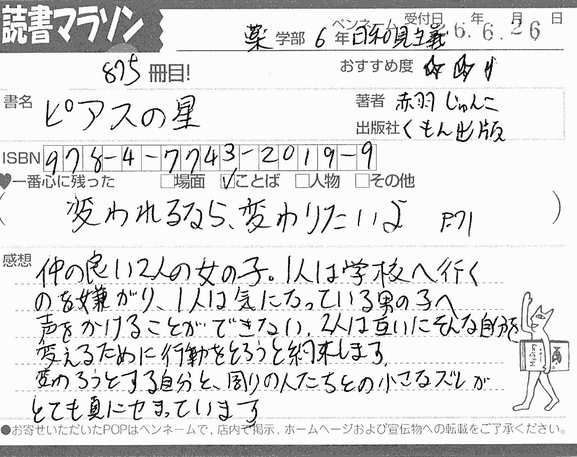 読書マラソン
ペンネーム 受付日 6.年6.月26日
薬学部 6年 日和見主義
875冊目!
おすすめ度 ☆☆
書名 ピアスの星
著者 赤羽じゅんこ
出版社 くもん出版
ISBN 978-4-7743-2019-9
♥一番心に残った □場面 ☑ことば □人物 □その他
(変われるなら、変わりたいよ P.71)
感想
仲の良い2人の女の子。1人は学校へ行く
のを嫌がり、1人は気になっている男の子へ
声をかけることができない。2人は互いにそんな自分を
変えるために行動をとろうと約束します。
変わろうとする自分と、周りの人たちとの小さなズレが
とても真にせまっています
●お寄せいただいたPOPはペンネームで、店内で掲示、ホームページおよび宣伝物への転載をご了承ください。